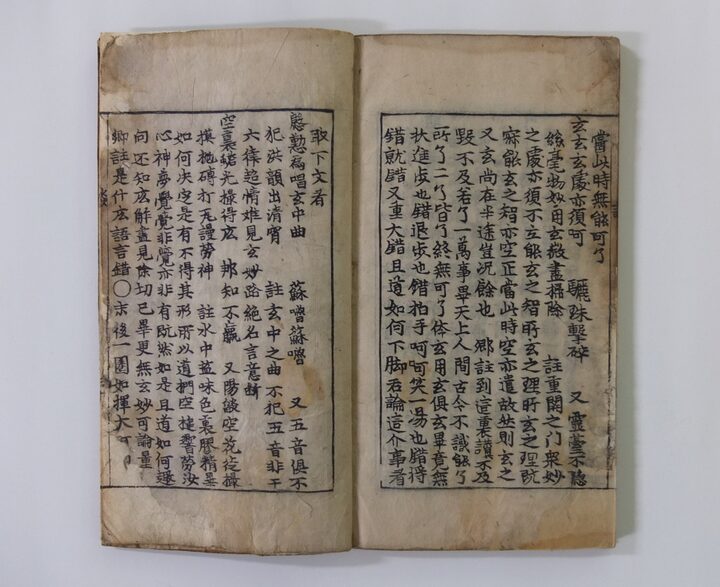 當此時無能可了
玄玄玄處亦須呵　驪珠擊碎　又靈臺不隱
絲毫物妙用玄微盡掃除　註重關之门衆妙
之處亦須不立能玄之智所玄之理所玄之理旣
寂能玄之智亦空正當此時空亦遣故然則玄之
又玄尚在半途豈況餘也　鄕註到這裏讚不及
毁不及若了一萬事畢天上人間古今不識能了
所了二了皆了終無可了体玄用玄俱玄畢竟無
狀進步也錯退步也錯拍手呵呵笑一場也錯將
錯就錯又重大錯且道如何下脚若論這介事看
取下文看
慇懃爲唱玄中曲　蘇嚕蘇嚕　又五音俱不
犯洪韻出淸霄　註玄中之曲不犯五音非干
六律超情難見玄妙路絶名言意断
空裏蟾光撮得庅　邦知不羸　又陽㷿空花徒撮
摸抛磚打瓦謾勞神　註水中盐味色裏膠精畢
如何決定是有不得其形所以道捫空捷響勞汝
心神夢覺覺非覺亦非有旣然如是且道如何趣
向还知庅解盡見除切已畢更無玄妙可論量
鄕註是什庅語言錯〇宗後一圓如揮大